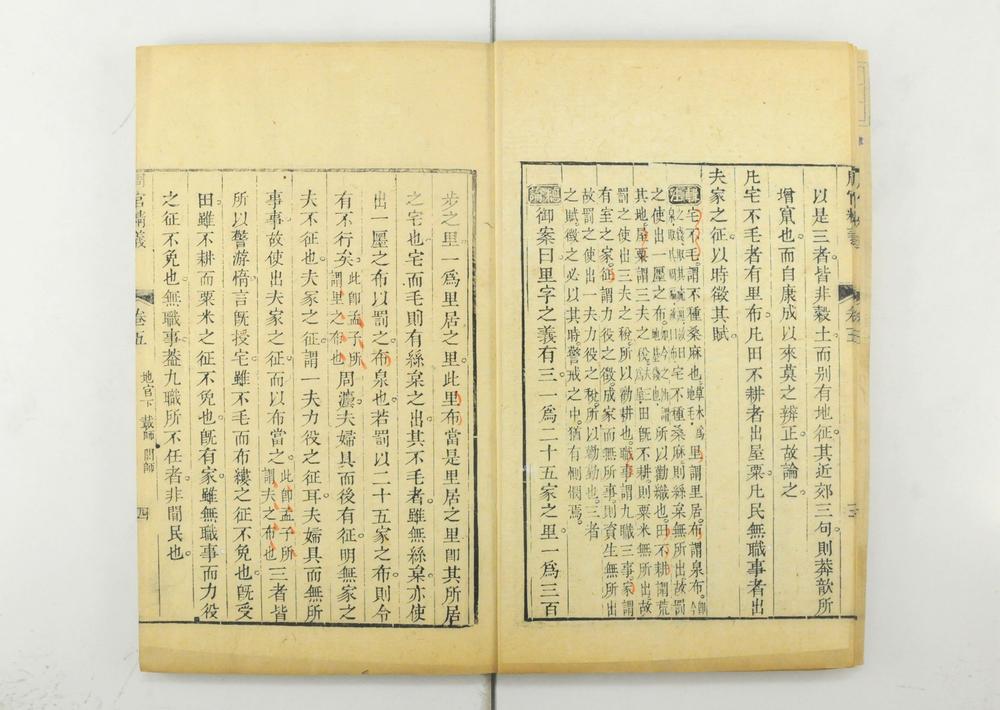 以是三者皆非穀土而别有地征其近郊三句則莽歆所
增竄也而自康成以來莫之辨正故論之
凡宅不毛者有里布凡田不耕者出屋粟凡民無職事者出
夫家之征以時徵其賦
宅不毛謂不種桑麻也草木爲地毛里謂里居布謂泉布
之使出一廛之布所以勸織也田不耕謂荒
其地屋粟謂三夫之稅田旣不耕則粟米無所出故
罰之使出三夫之稅所以勸耕也職事謂九職三事家謂
有室之家征謂力役之徵成家而無所事則資生無所出
故罰之使出一夫力役之稅所以勸勤也三者
之賦徵之必以其時警戒之中猶有惻憫焉
御案曰里字之義有三一爲二十五家之里一爲三百
步之里一爲里居之里此里布當是里居之里卽其所居
之宅也宅而毛則有絲枲之出其不毛者雖無絲枲亦使
出一廛之布以罰之布泉也若罰以二十五家之布則令
有不行矣此卽孟子所謂里之布也周灋夫婦具而後有征明無家之
夫不征也夫家之征謂一夫力役之征耳夫婦具而無所
事事故使出夫家之征而以布當之此卽孟子所謂夫之布也三者皆
所以警游惰言旣授宅雖不毛而布縷之征不免也旣受
田雖不耕而粟米之征不免也旣有家雖無職事而力役
之征不免也無職事蓋九職所不任者非閒民也
周官精義 卷五 地官下 載師 閭師 四